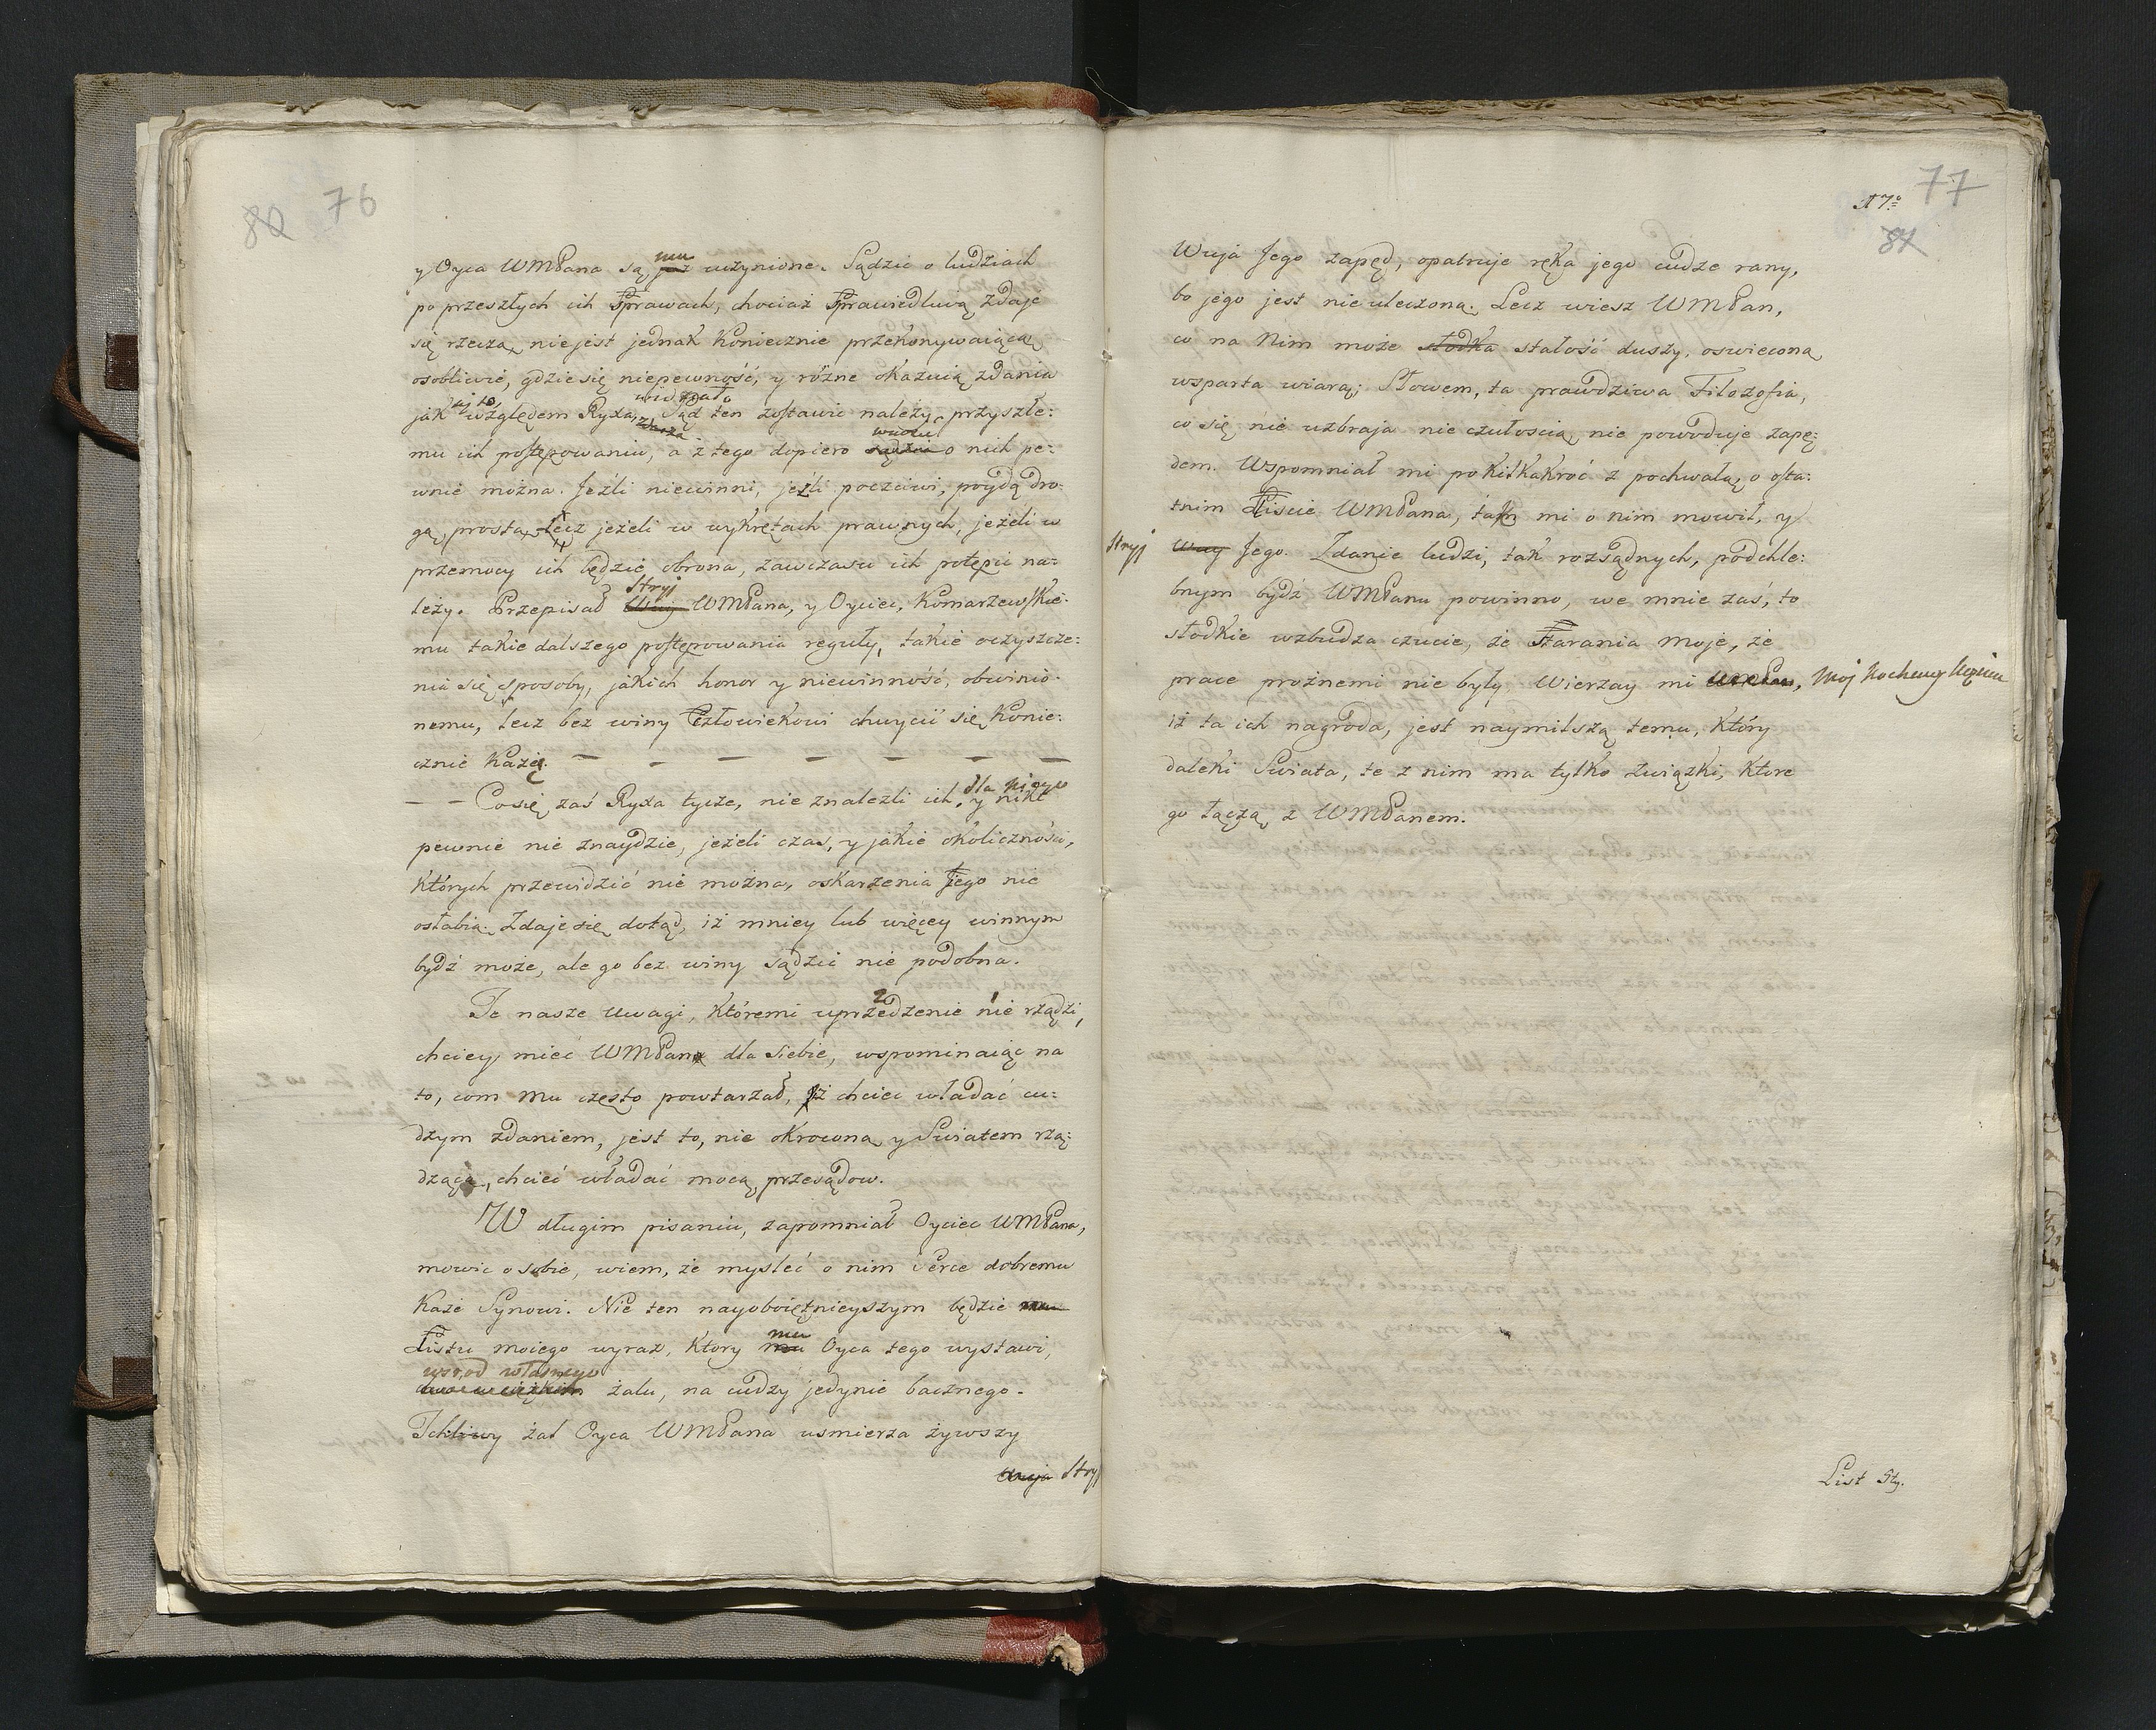 80 76
y Oyca WMPana są, mu uczynione. Sądzić o ludziach
po przeszłych ich Sprawach, chociaż Sprawiedliwą zdaje
się rzeczą, nie jest jednak koniecznie przekonywaiącą,
osobliwie, gdzie się niepewność, y różne okazuią zdania
jak względem Ryxa, Sąd ten zostawić należy przyszłe:
mu ich postępowaniu, a z tego dopiero o nich pe:
wnie można. Jeźli niewinni, jeźli poczciwi, poydą dro:
gą prostą, lecz jeżeli w wykrętach prawnych, jeżeli w
przemocy ich będzie obrona, zawczasu ich potępić na:
leży. Przepisał Stryj Wuj WMPana, y Oyciec, Komarzewskie:
mu takie dalszego postępowania reguły, takie oczyszcze:
nia się sposoby, jakich honor y niewinność, obwinio:
nemu, lecz bez winy Człowiekowi chwycić się konie:
cznie każą. — — — — — — —
— — Co się zaś Ryxa tycze, nie znaleźli ich dla niego, y nikt
pewnie nie znaydzie, jeżeli czas, y jakie okoliczności,
których przewidzić nie można, oskarżenia Jego nie
osłabią. Zdaje się dotąd, iż mniey lub więcey winnym
bydź może, ale go bez winy sądzić nie podobna.
Te nasze uwagi, któremi uprzedzenie 2 nie 1 rządzi,
chciey mieć WMPan dla siebie, wspominaiąc na
to, com mu często powtarzał, iż chcieć władać cu:
dzym zdaniem, jest to, nie okroconą y Swiatem rzą:
dzącą, chcieć władać mocą przesądow.
W długim pisaniu, zapomniał Oyciec WMPana,
mowić o sobie, wiem, że mysleć o nim Serce dobremu
każe Synowi. Nie ten nayoboiętnieyszym będzie
Listu moiego wyraz, ktory mu Oyca tego wystawi,
wsrod własnego żalu, na cudzy jedynie bacznego.
Tchliwy żal Oyca WMPana usmierza żywszy
Wuja Stryj
77
A 7º
81
Wuja Jego zapęd, opatruje ręka jego cudze rany,
bo jego jest nieuleczona. Lecz wiesz WMPan,
co na Nim może słodka stałość duszy, oswiecona,
wsparta wiarą; Słowem, ta prawdziwa Filozofia,
co się nie uzbraja nieczułoscią, nie powoduje zapę:
dem. Wspomniał mi po kilkakroć z pochwałą, o osta:
tnim Liscie WMPana, mi o nim mowił, y
Stryj Wuy Jego. Zdanie ludzi, tak rozsądnych, podchle:
bnym bydź WMPanu powinno, we mnie zaś, to
słodkie wzbudza czucie, że Starania moje, że
prace prożnemi nie były. Wierzay mi WMPan, mój kochany Xiąże
iż ta ich nagroda, jest naymilszą temu, Który
daleki Swiata, te z nim ma tylko związki, ktore
go łączą z WMPanem.
List 5ty.